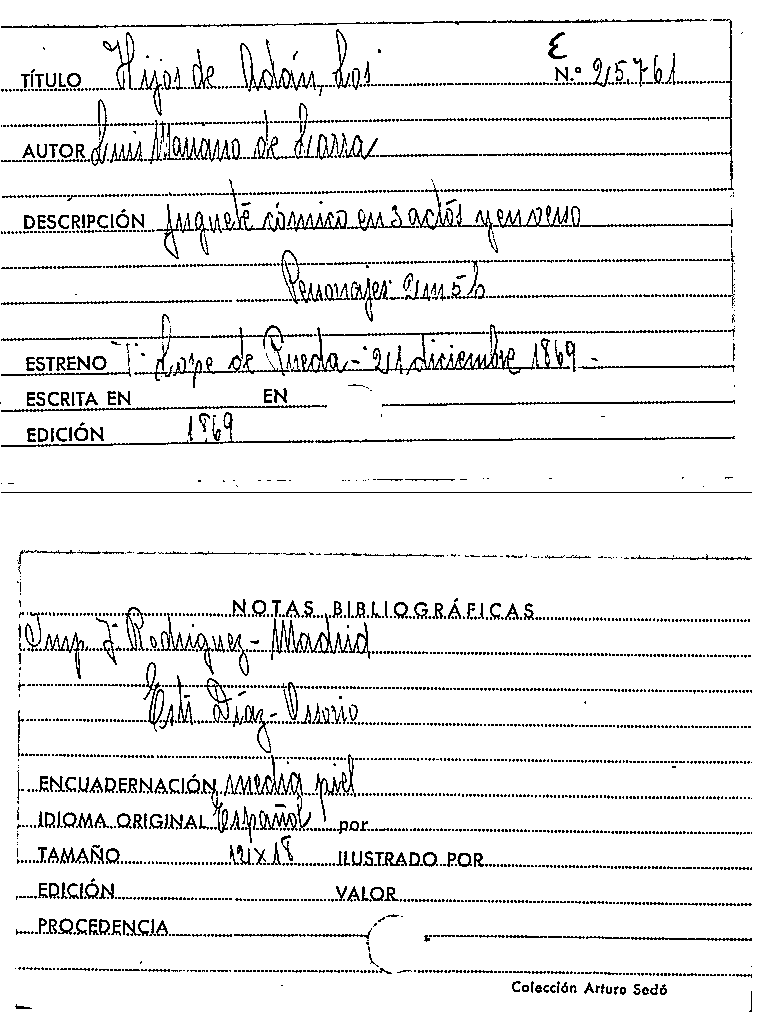 TÍTULO Hijos de Adán, Los E N.º 25.761
AUTOR Luis Mariano de Larra
DESCRIPCIÓN Juguete cómico en 3 actos y en verso
Personajes 2 m 5 h
ESTRENO T. Lope de Rueda - 21 diciembre 1869 -
ESCRITA EN EN
EDICIÓN 1869
NOTAS BIBLIOGRÁFICAS
Imp J. Rodriguez - Madrid
Díaz - Ossorio
ENCUADERNACIÓN media piel
IDIOMA ORIGINAL Español por
TAMAÑO 12x18 ILUSTRADO POR
EDICIÓN VALOR
PROCEDENCIA
Colección Arturo Sedó